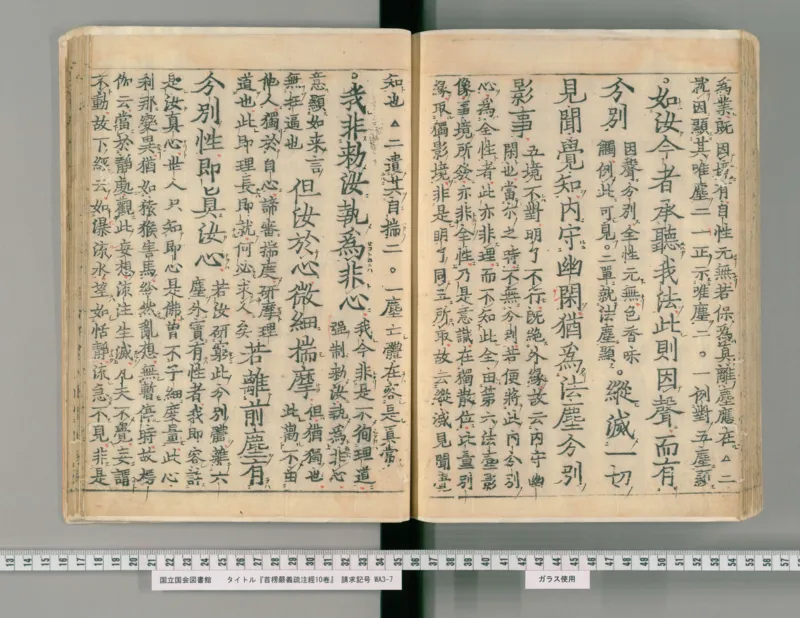 為業既因塵有自性元無若保為真離塵應在△二
因顯其唯塵二一正示唯塵二。一例對五塵顯
。如汝今者承聽我法此則因聲而有
分別
因聲分別全性元無色香味
觸例此可見。二單就法塵顯
。縱滅一切
見聞覺知內守幽閑猶為法塵分別
影事
五境不對明了不行既絕外緣故云內守幽
閑也當尒之時不無分別若便將此內分別
心為全性者此亦非理而不知此全由第六法塵影
像量境所發亦非全性乃是意識在獨散位比量別
緣取獨影境非是明了同五所取故云縱滅見聞覺
知也△二遣其自揣二。一塵亡體在容是真當
。我非勅汝執為非心
我今非是不徇理道
强制勅汝執為非心
意顯如来言
無抂逼也
但汝於心微細揣摩
但猶獨也
此萬不由
他人獨於自心諦審揣度研摩理
道也此即理長即就何必求人矣
若離前塵有
分別性即真汝心
若汝研窮此分別體離六
塵外實有性者我即容許
是汝真心世人只知即心是佛曾不子細塵量此心
刹那變異猶如猿猴害馬紛然亂想無暫停時故楞
伽云當於靜處觀此妄想流注生滅凡夫不覺妄謂
不動故下經云如瀑流水望如恬靜流急不見非是
国立国会図書館 タイトル『首楞嚴義疏注經10巻』 請求記号 WA3-7
ガラス使用